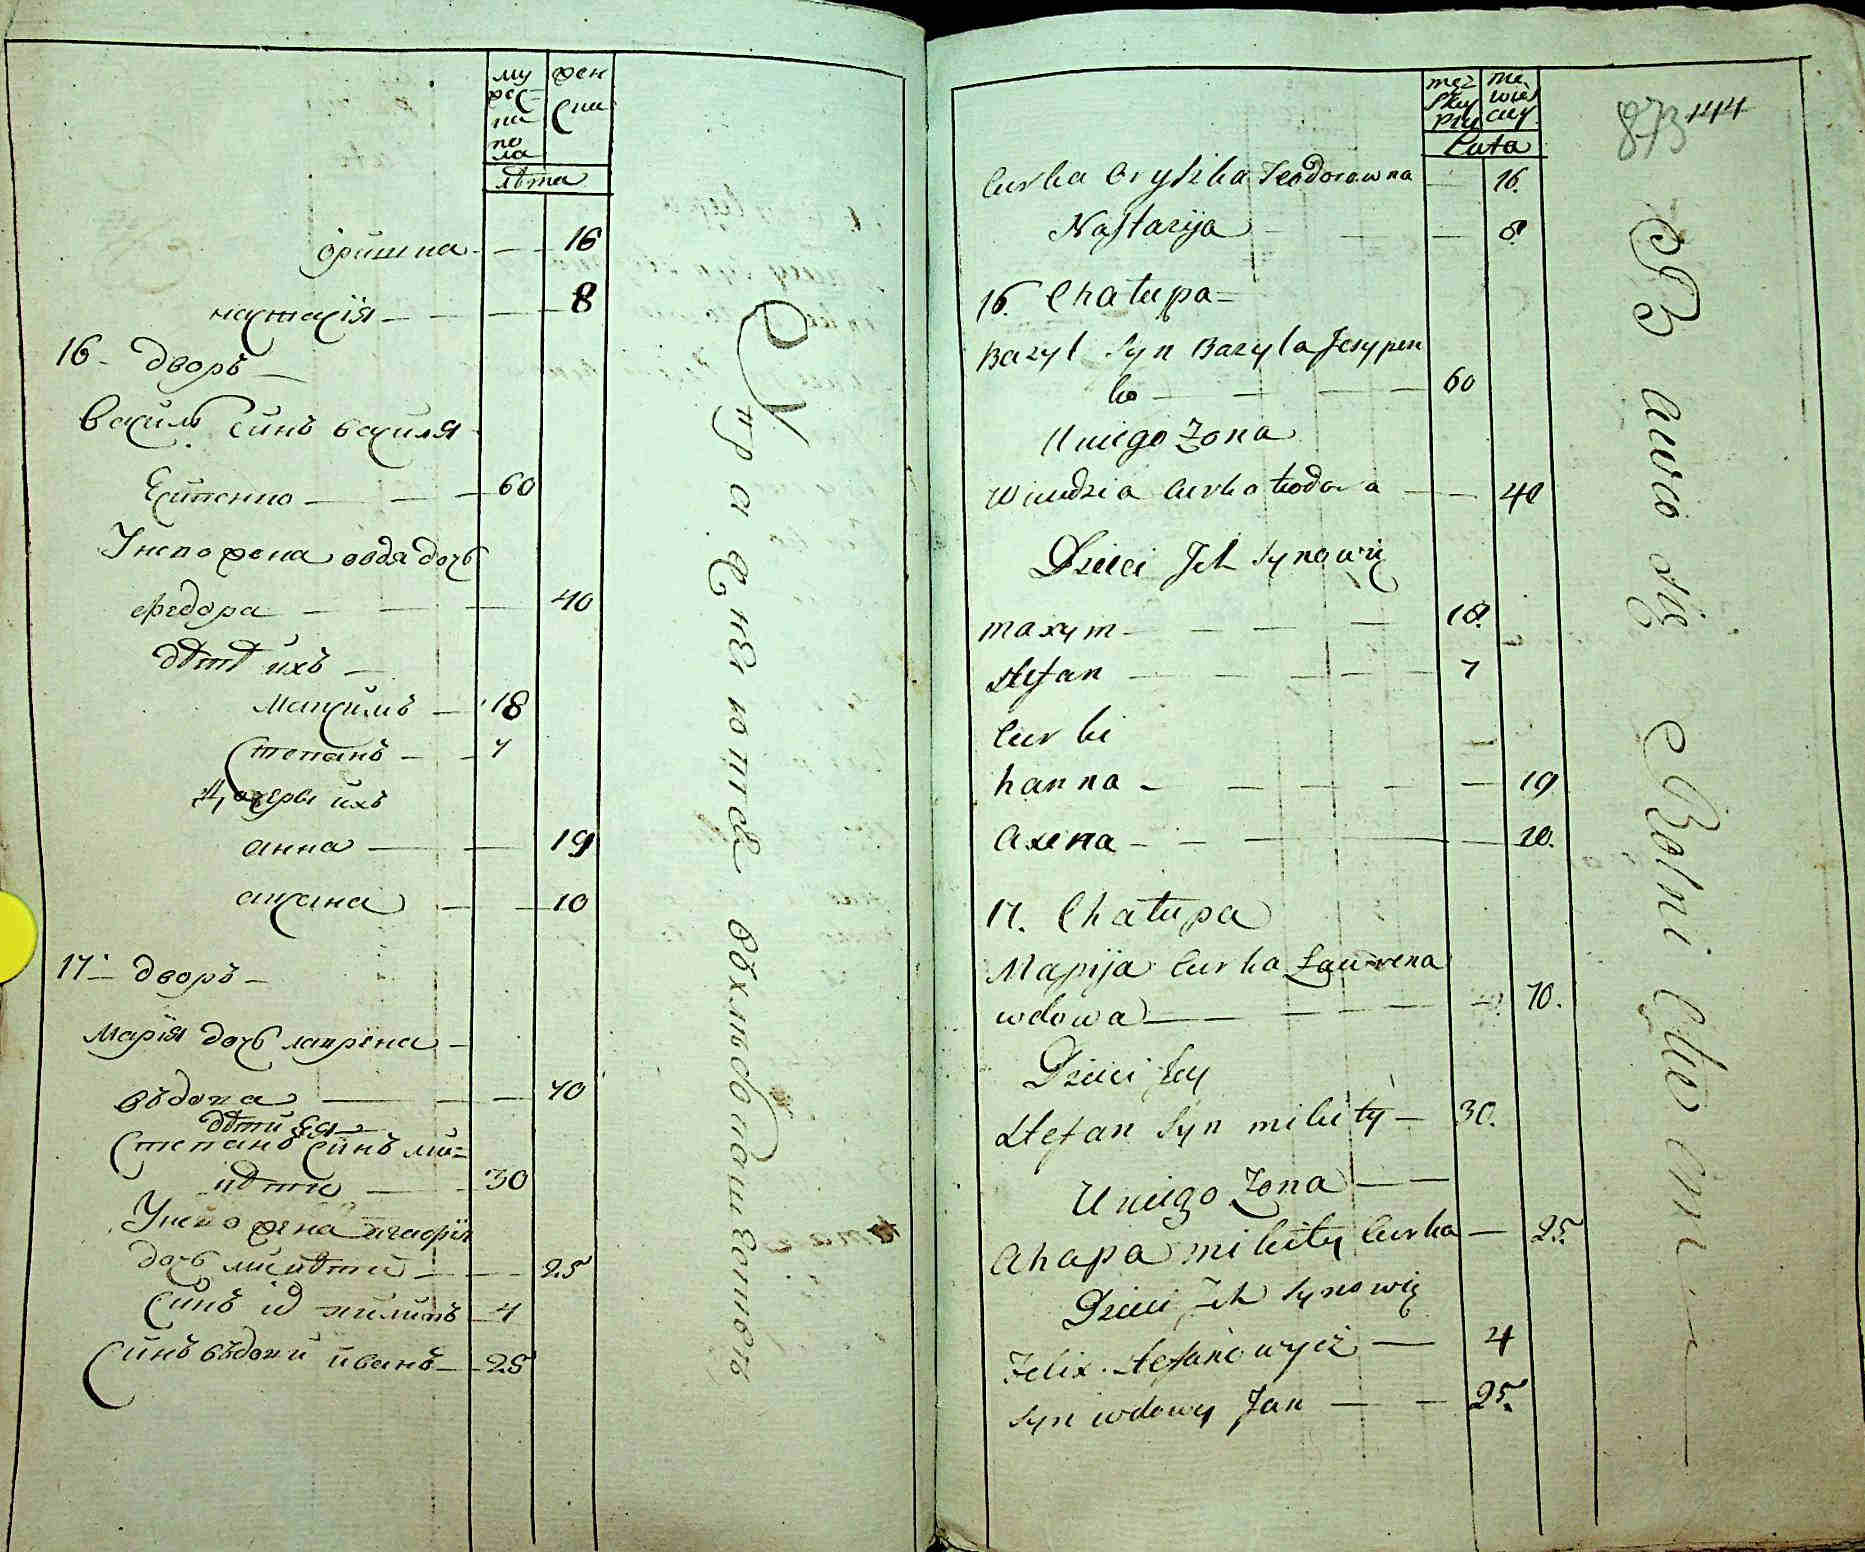 му
жес=
ка
по
ла
жен
ски
лѣта
оришка — — 16
настасія — — — 8
16 - дворъ —
василь синъ василя
Есипенко — — — 60
У него жена овдя дочъ
федора — — — 40
дѣтѣ ихъ —
Максимъ — 18
Степанъ — — 7
Дочеры ихъ
анна — — 19
аксана — — 10
17 - дворъ —
Марія дочъ лаврена —
вѣдова — — 70
дѣти Ея —
Степанъ синъ ми=
китѣ — — 30
У него жена агафія
дочъ микитѣ — — 25
Синъ филипъ — 4
Синъ вѣдови иванъ — 25
Упражняются въ хлебопашестве
męz
skey
Płci
nie
wies
ciey
Lata
873 444
Curka Oryszka Teodorowna — 16.
Nastazija — — — 8.
16. Chałupa =
Bazyl Syn Bazyla Jesypen
ko — — — 60
U niego Zona
Wiwdzia Curka teodora — — 40
Dzieci Ich Synowię
maxym — — — — 18.
Stefan — — — — 7
Curki
hanna — — — — — 19
Axena — — — — — 10.
17. Chałupa
Maryja Curka Lawrena
wdowa — — — — 70.
Dzieci Jey
Stefan Syn mikity — 30.
U niego Zona — —
Ahapa mikity Curka — 25.
Dzieci Ich Synowię
Felix Stefanowycz — 4
Syn wdowy Jan — — 25.
Bawią się Rolnictwem —